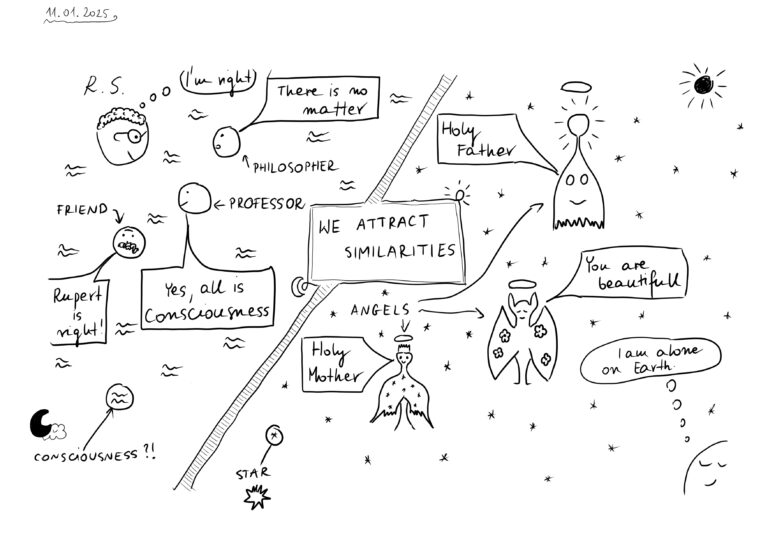 11.01.2025
R.S.
I'm right
There is no
matter
PHILOSOPHER
PROFESSOR
FRIEND
Rupert
is
right!
Yes, all is
Consciousness
CONSCIOUSNESS?!
WE ATTRACT
SIMILARITIES
Holy
Father
ANGELS
You are
beautifull
Holy
Mother
I am alone
on Earth.
STAR